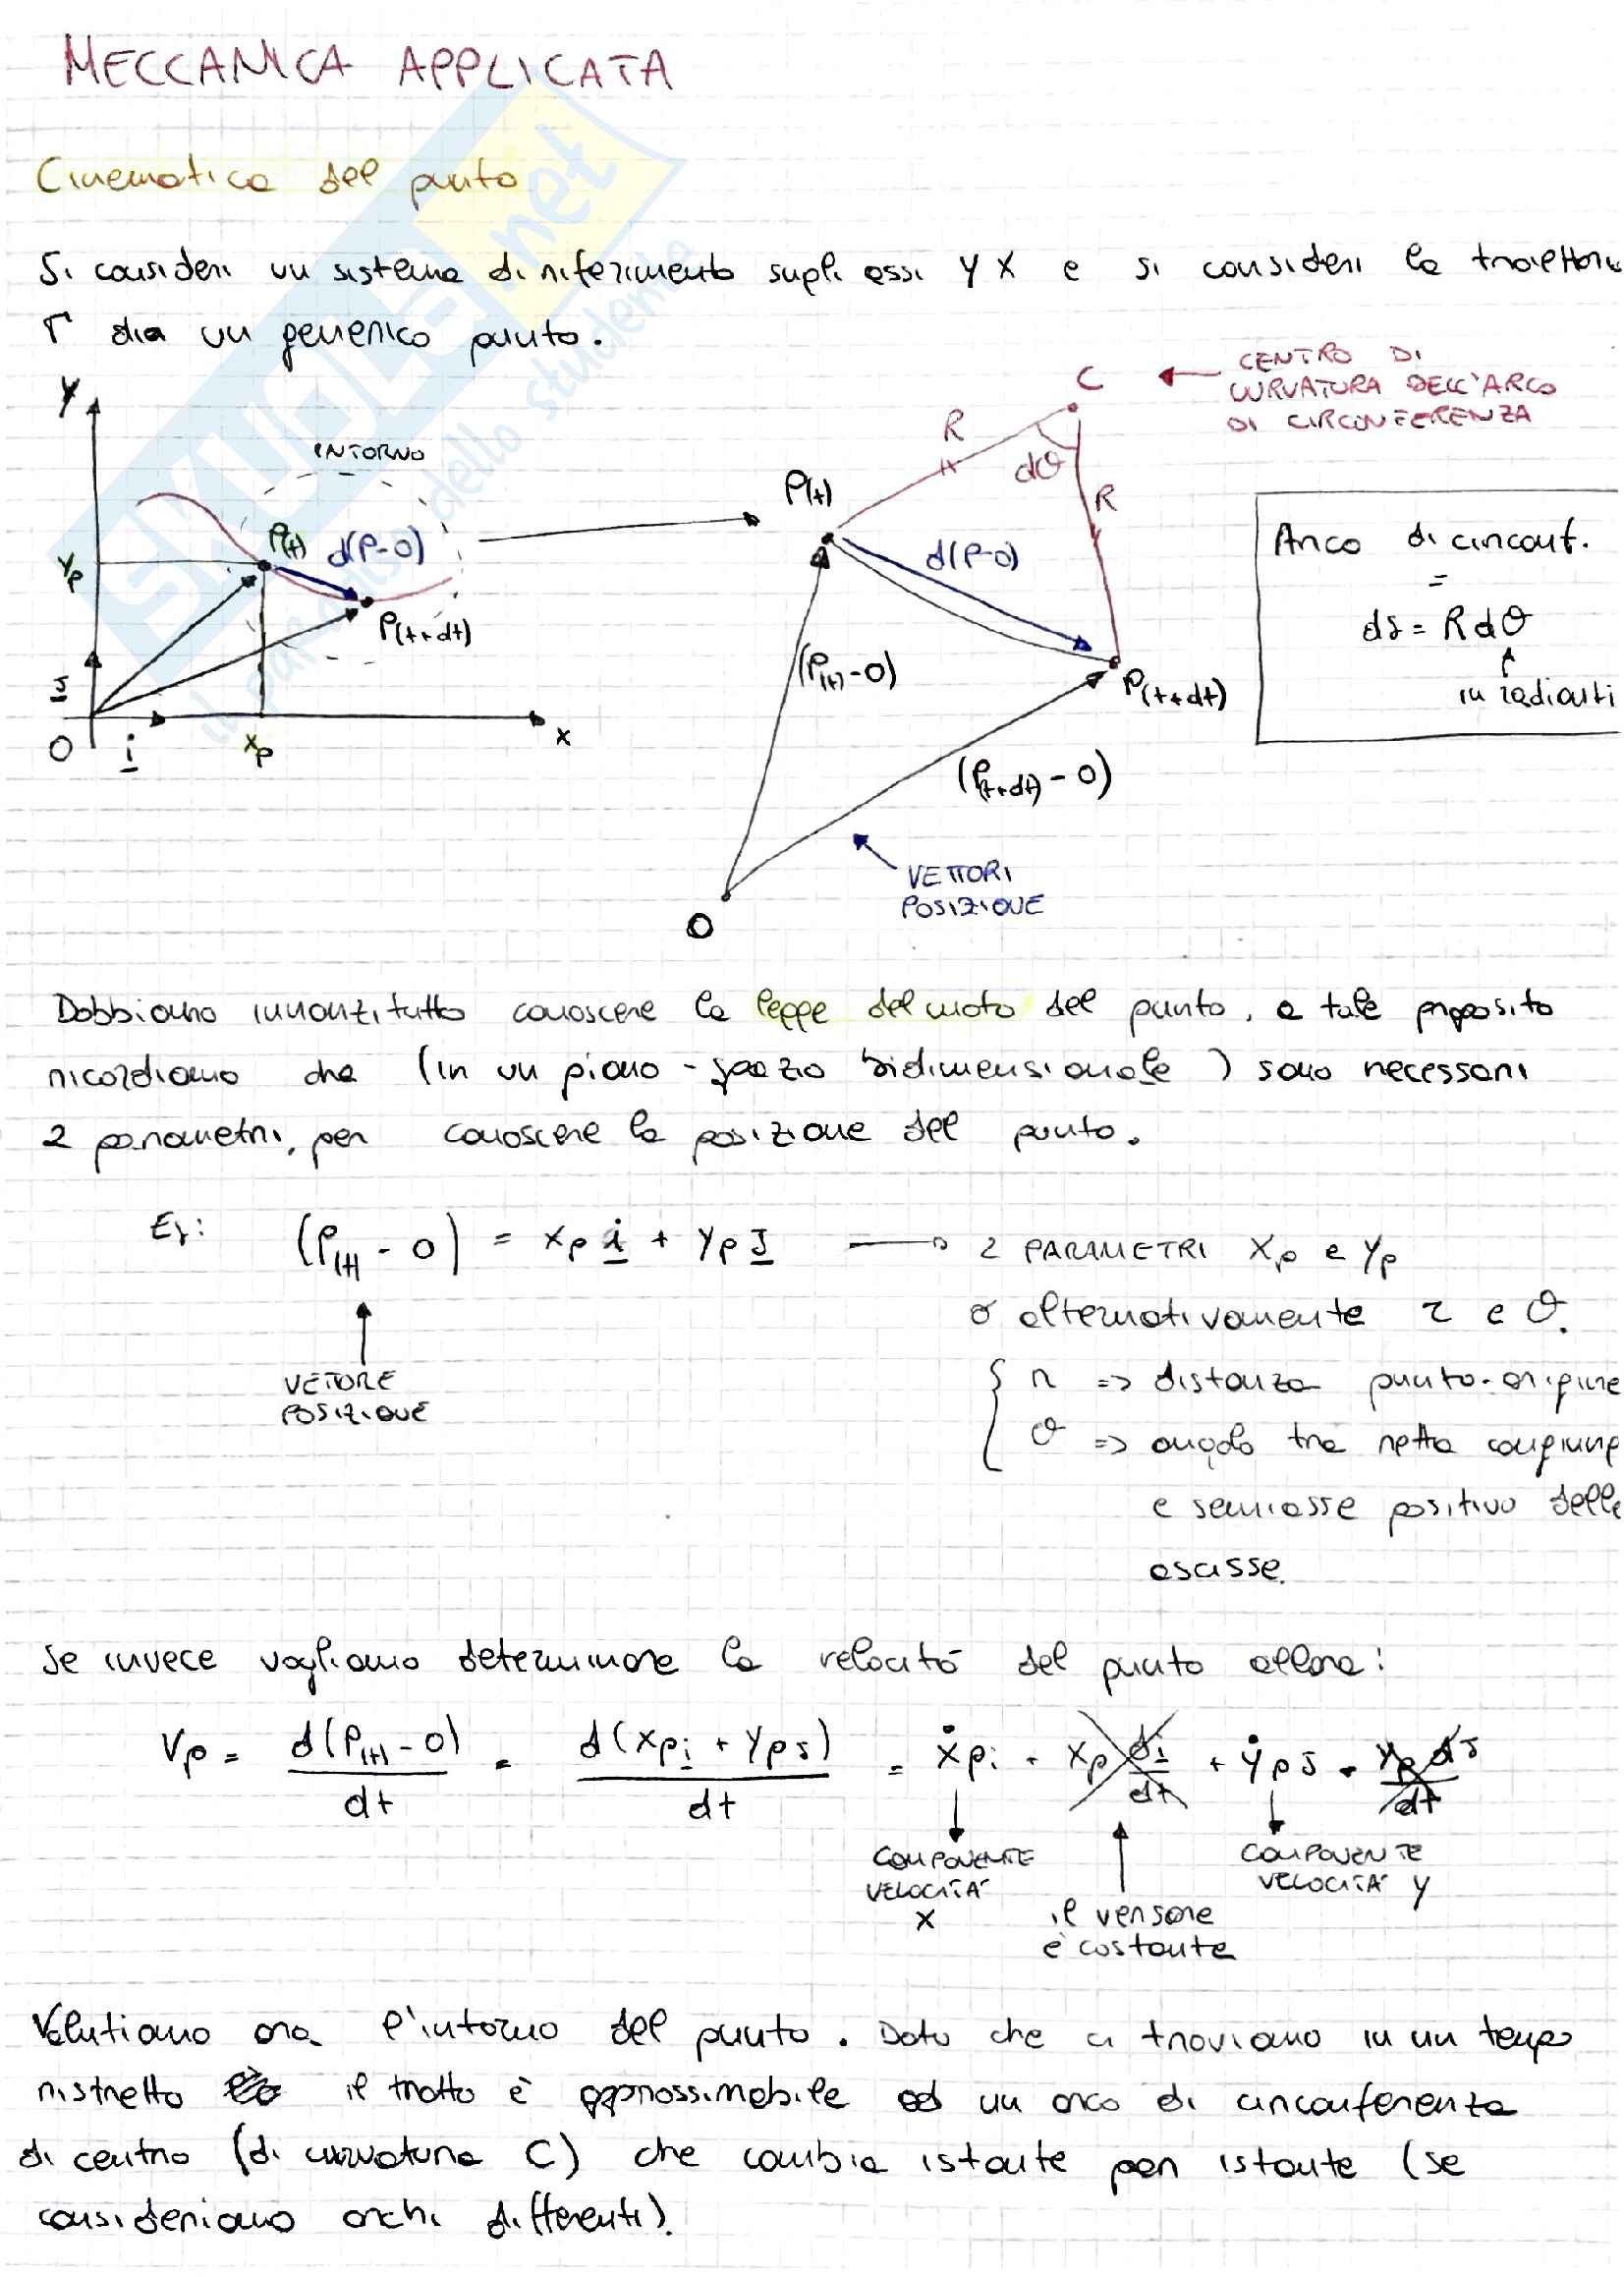 MECCANICA APPLICATA
Cinematica del punto
Si consideri un sistema di riferimento sugli assi y x e si consideri la traiettoria
Γ di un generico punto.
Y
INTORNO
P(t)
d(P-O)
yp
P(t+dt)
j
O
i
xp
x
C
CENTRO DI
CURVATURA DELL'ARCO
DI CIRCONFERENZA
R
dθ
R
P(t)
d(P-O)
(P(t)-O)
P(t+dt)
(P(t+dt)-O)
VETTORI
POSIZIONE
O
Arco di circonf.
=
ds = R dθ
in radianti
Dobbiamo innanzitutto conoscere la legge del moto del punto, a tale proposito
ricordiamo che (in un piano - spazio bidimensionale) sono necessari
2 parametri, per conoscere la posizione del punto.
Es: (P(t) - O) = xp i + yp j → 2 PARAMETRI xp e yp
VETTORE
POSIZIONE
o alternativamente r e θ.
{ r => distanza punto-origine
θ => angolo tra retta congiung
e semiasse positivo delle
ascisse.
Se invece vogliamo determinare la velocità del punto allora:
Vp = d(P(t)-O)/dt = d(xp i + yp j)/dt = ẋp i + xp di/dt + ẏp j + yp dj/dt
COMPONENTE
VELOCITA'
X
il versore
è costante
COMPONENTE
VELOCITA' Y
Valutiamo ora l'intorno del punto. Dato che ci troviamo in un tempo
ristretto il tratto è approssimabile ad un arco di circonferenza
di centro (di curvatura C) che cambia istante per istante (se
consideriamo archi differenti).
SKUOLA.net
il paradiso dello studente